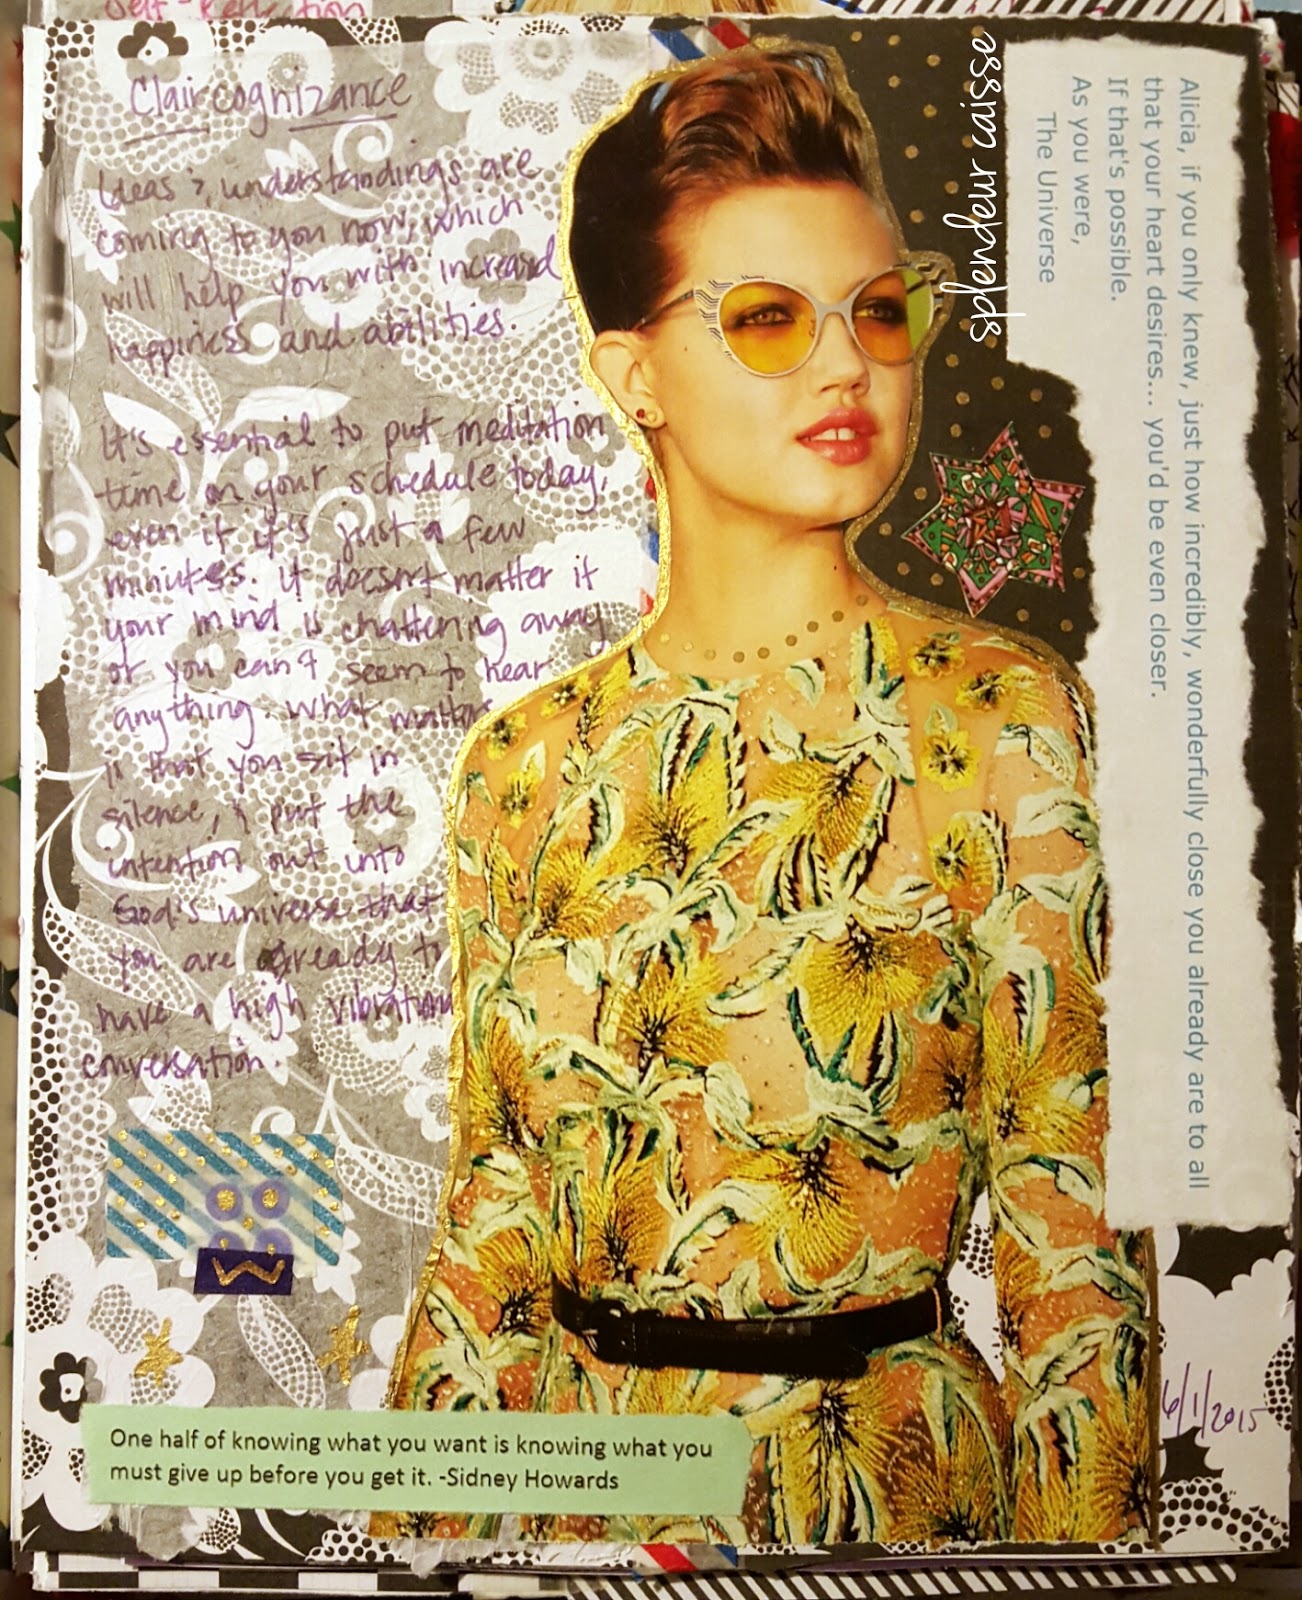 Self-Reflection
Claircognizance
Ideas & understandings are
coming to you now, which
will help you with increased
happiness and abilities.
It's essential to put meditation
time on your schedule today,
even if it's just a few
minutes. It doesn't matter if
your mind is chattering away
or you can't seem to hear
anything. What matters
is that you sit in
silence, & put the
intention out into
God's universe that
you are already to
have a high vibrational
conversation.
W
One half of knowing what you want is knowing what you
must give up before you get it. -Sidney Howards
splendeur caisse
Alicia, if you only knew, just how incredibly, wonderfully close you already are to all
that your heart desires... you'd be even closer.
If that's possible.
As you were,
The Universe
6/1/2015